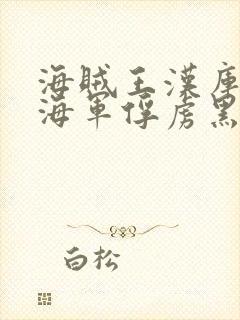 海賊王漢庫
海軍俘虜黑
白松